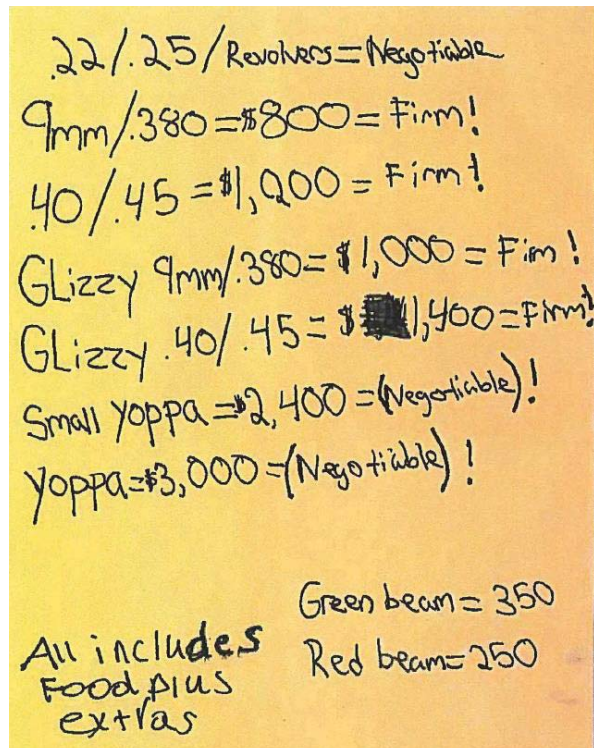 .22/.25/Revolvers=Negotiable
9mm/.380=$800=Firm!
.40/.45=$1,200=Firm!
GLizzy 9mm/.380=$1,000=Firm!
GLizzy .40/.45=$1,400=Firm!
Small yoppa=$2,400=(Negotiable)!
yoppa=$3,000=(Negotiable)!
Green beam=350
Red beam=250
All includes
Food plus
extras